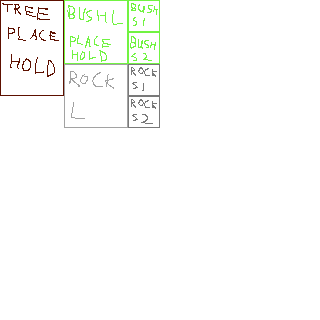 TREE
PLACE
HOLD
BUSH L
PLACE
HOLD
BUSH
S1
BUSH
S2
ROCK
L
ROCK
S1
ROCK
S2